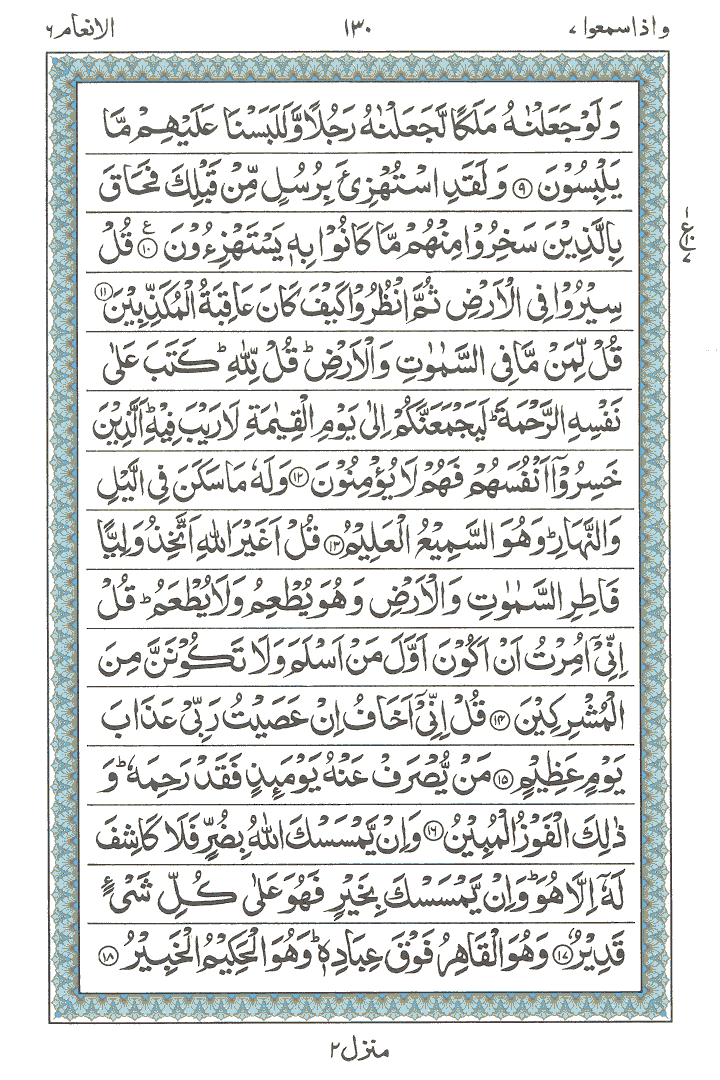 واذاسمعوا ٧ ١٣٠ الانعام ٦
وَلَوْ جَعَلْنٰهُ مَلَكًا لَّجَعَلْنٰهُ رَجُلًا وَّلَلَبَسْنَا عَلَيْهِمْ مَّا
يَلْبِسُوْنَ ۹ وَلَقَدِ اسْتُهْزِئَ بِرُسُلٍ مِّنْ قَبْلِكَ فَحَاقَ
بِالَّذِيْنَ سَخِرُوْا مِنْهُمْ مَّا كَانُوْا بِهٖ يَسْتَهْزِءُوْنَ ۱۰ ع قُلْ
سِيْرُوْا فِي الْاَرْضِ ثُمَّ انْظُرُوْا كَيْفَ كَانَ عَاقِبَةُ الْمُكَذِّبِيْنَ ۱۱
قُلْ لِّمَنْ مَّا فِي السَّمٰوٰتِ وَالْاَرْضِ ؕ قُلْ لِّلّٰهِ ؕ كَتَبَ عَلٰى
نَفْسِهِ الرَّحْمَةَ ؕ لَيَجْمَعَنَّكُمْ اِلٰى يَوْمِ الْقِيٰمَةِ لَا رَيْبَ فِيْهِ ؕ اَلَّذِيْنَ
خَسِرُوْۤا اَنْفُسَهُمْ فَهُمْ لَا يُؤْمِنُوْنَ ۱۲ وَلَهٗ مَا سَكَنَ فِي الَّيْلِ
وَالنَّهَارِ ؕ وَهُوَ السَّمِيْعُ الْعَلِيْمُ ۱۳ قُلْ اَغَيْرَ اللّٰهِ اَتَّخِذُ وَلِيًّا
فَاطِرِ السَّمٰوٰتِ وَالْاَرْضِ وَهُوَ يُطْعِمُ وَلَا يُطْعَمُ ؕ قُلْ
اِنِّيْۤ اُمِرْتُ اَنْ اَكُوْنَ اَوَّلَ مَنْ اَسْلَمَ وَلَا تَكُوْنَنَّ مِنَ
الْمُشْرِكِيْنَ ۱۴ قُلْ اِنِّيْۤ اَخَافُ اِنْ عَصَيْتُ رَبِّيْ عَذَابَ
يَوْمٍ عَظِيْمٍ ۱۵ مَنْ يُّصْرَفْ عَنْهُ يَوْمَئِذٍ فَقَدْ رَحِمَهٗ ؕ وَ
ذٰلِكَ الْفَوْزُ الْمُبِيْنُ ۱۶ وَاِنْ يَّمْسَسْكَ اللّٰهُ بِضُرٍّ فَلَا كَاشِفَ
لَهٗۤ اِلَّا هُوَ ؕ وَاِنْ يَّمْسَسْكَ بِخَيْرٍ فَهُوَ عَلٰى كُلِّ شَيْءٍ
قَدِيْرٌ ۱۷ وَهُوَ الْقَاهِرُ فَوْقَ عِبَادِهٖ ؕ وَهُوَ الْحَكِيْمُ الْخَبِيْرُ ۱۸
منزل ٢